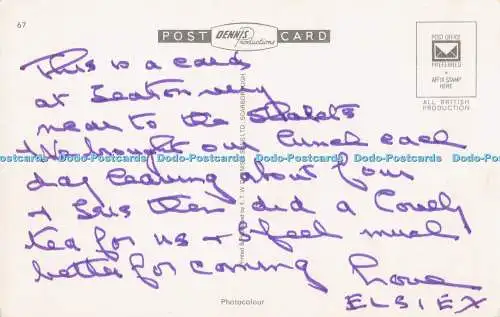 67
POST Dennis Productions CARD
POST OFFICE
PREFERRED
AFFIX STAMP
HERE
ALL BRITISH
PRODUCTION
This is a card
at Seaton very
near to the
We brought our lunch each
day leaving about four
+ then did a Lovely
tea for us + I feel much
better for coming
Love
ELSIE X
Printed &
LTD. SCARBOROUGH
Dodo-Postcards Dodo-Postcards Dodo-Postcards Dodo-Postcards Dodo-Postcards Dodo-Postcards
Photocolour